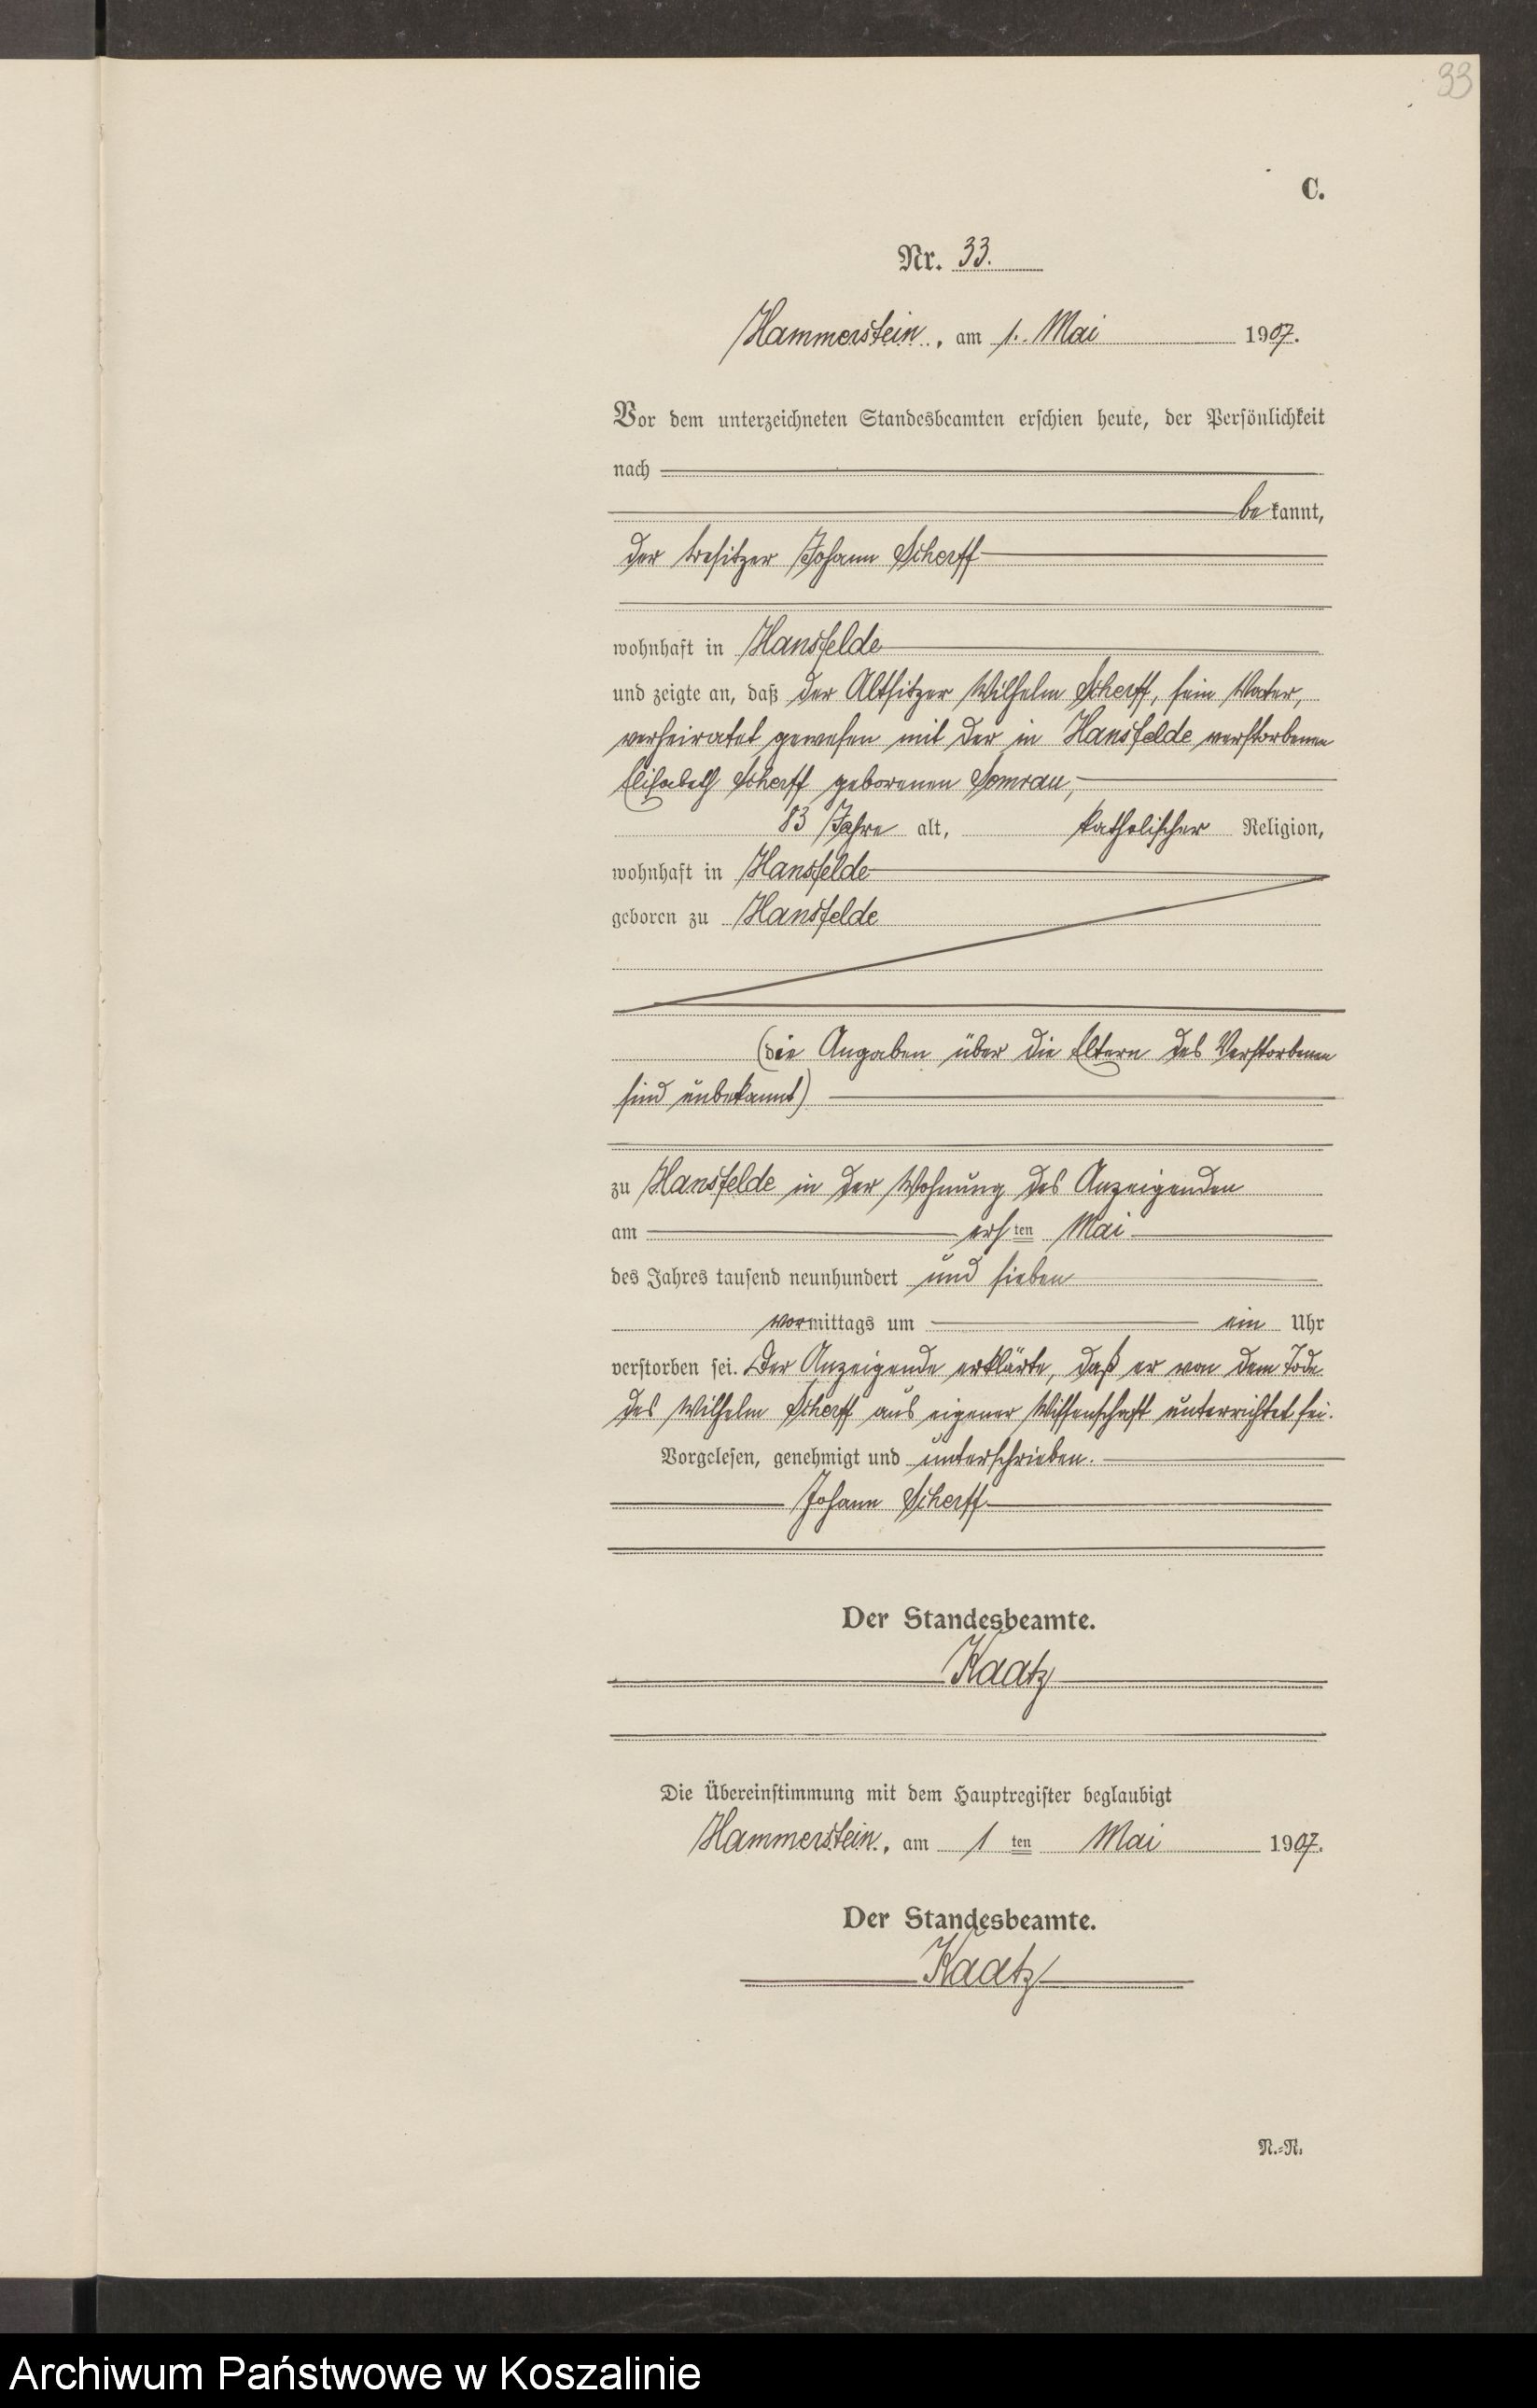 33
C.
Nr. 33.
Hammerstein, am 1. Mai 1907.
Vor dem unterzeichneten Standesbeamten erschien heute, der Persönlichkeit
nach
bekannt,
der Besitzer Johann Scherff
wohnhaft in Hansfelde
und zeigte an, daß der Altsitzer Wilhelm Scherff, sein Vater,
verheiratet gewesen mit der in Hansfelde verstorbenen
Elisabeth Scherff geborenen Somrau,
83 Jahre alt, katholischer Religion,
wohnhaft in Hansfelde
geboren zu Hansfelde
(die Angaben über die Eltern des Verstorbenen
sind unbekannt)
zu Hansfelde in der Wohnung des Anzeigenden
am ersten Mai
des Jahres tausend neunhundert und sieben
vormittags um ein Uhr
verstorben sei. Der Anzeigende erklärte, daß er von dem Tode
des Wilhelm Scherff aus eigener Wissenschaft unterrichtet sei.
Vorgelesen, genehmigt und unterschrieben.
Johann Scherff
Der Standesbeamte.
Kaatz
Die Übereinstimmung mit dem Hauptregister beglaubigt
Hammerstein, am 1ten Mai 1907.
Der Standesbeamte.
Kaatz
N.-R.
Archiwum Państwowe w Koszalinie